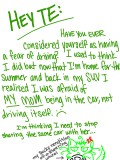 HEY TE:
HAVE YOU EVER
considered yourself as having
a fear of driving? I used to think
I did but now that I'm home for the
summer and back in my SUV I
realized I was afraid of
MY MOM being in the car, not
driving itself.
I'm thinking I need to stop
sharing the same car with her..